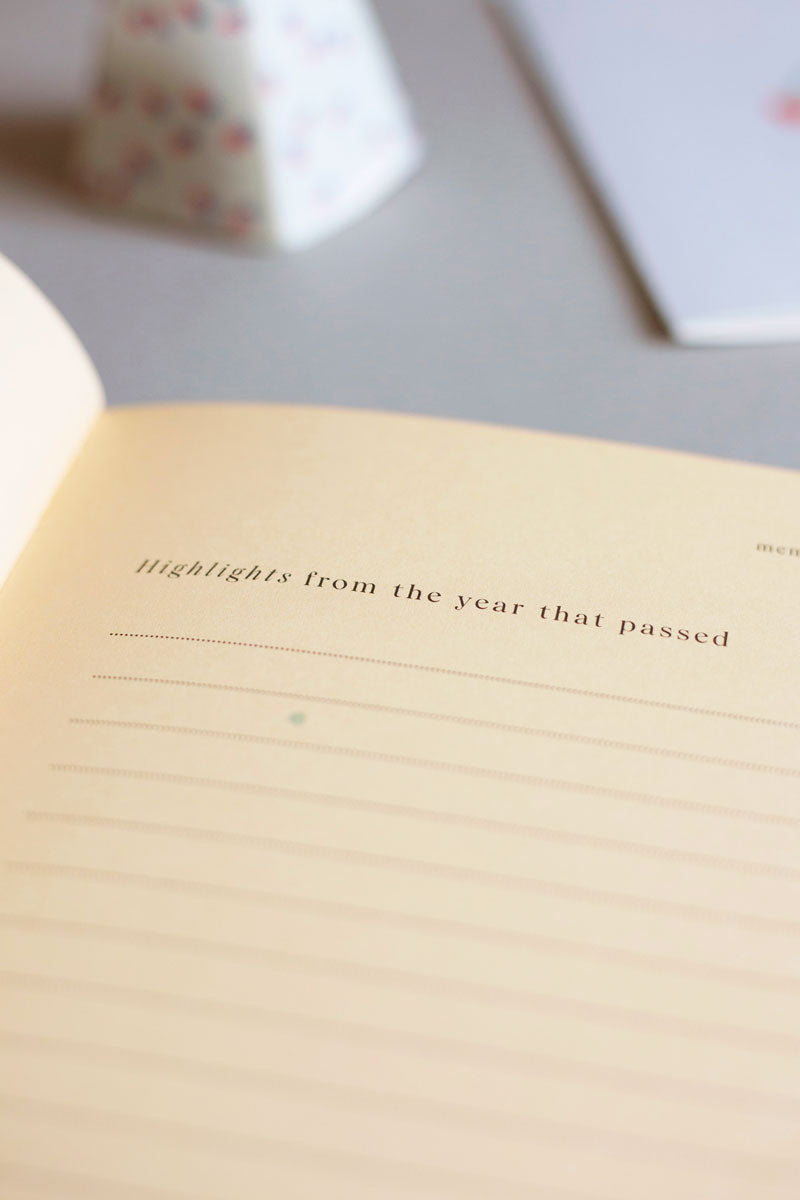 Highlights from the year that passed